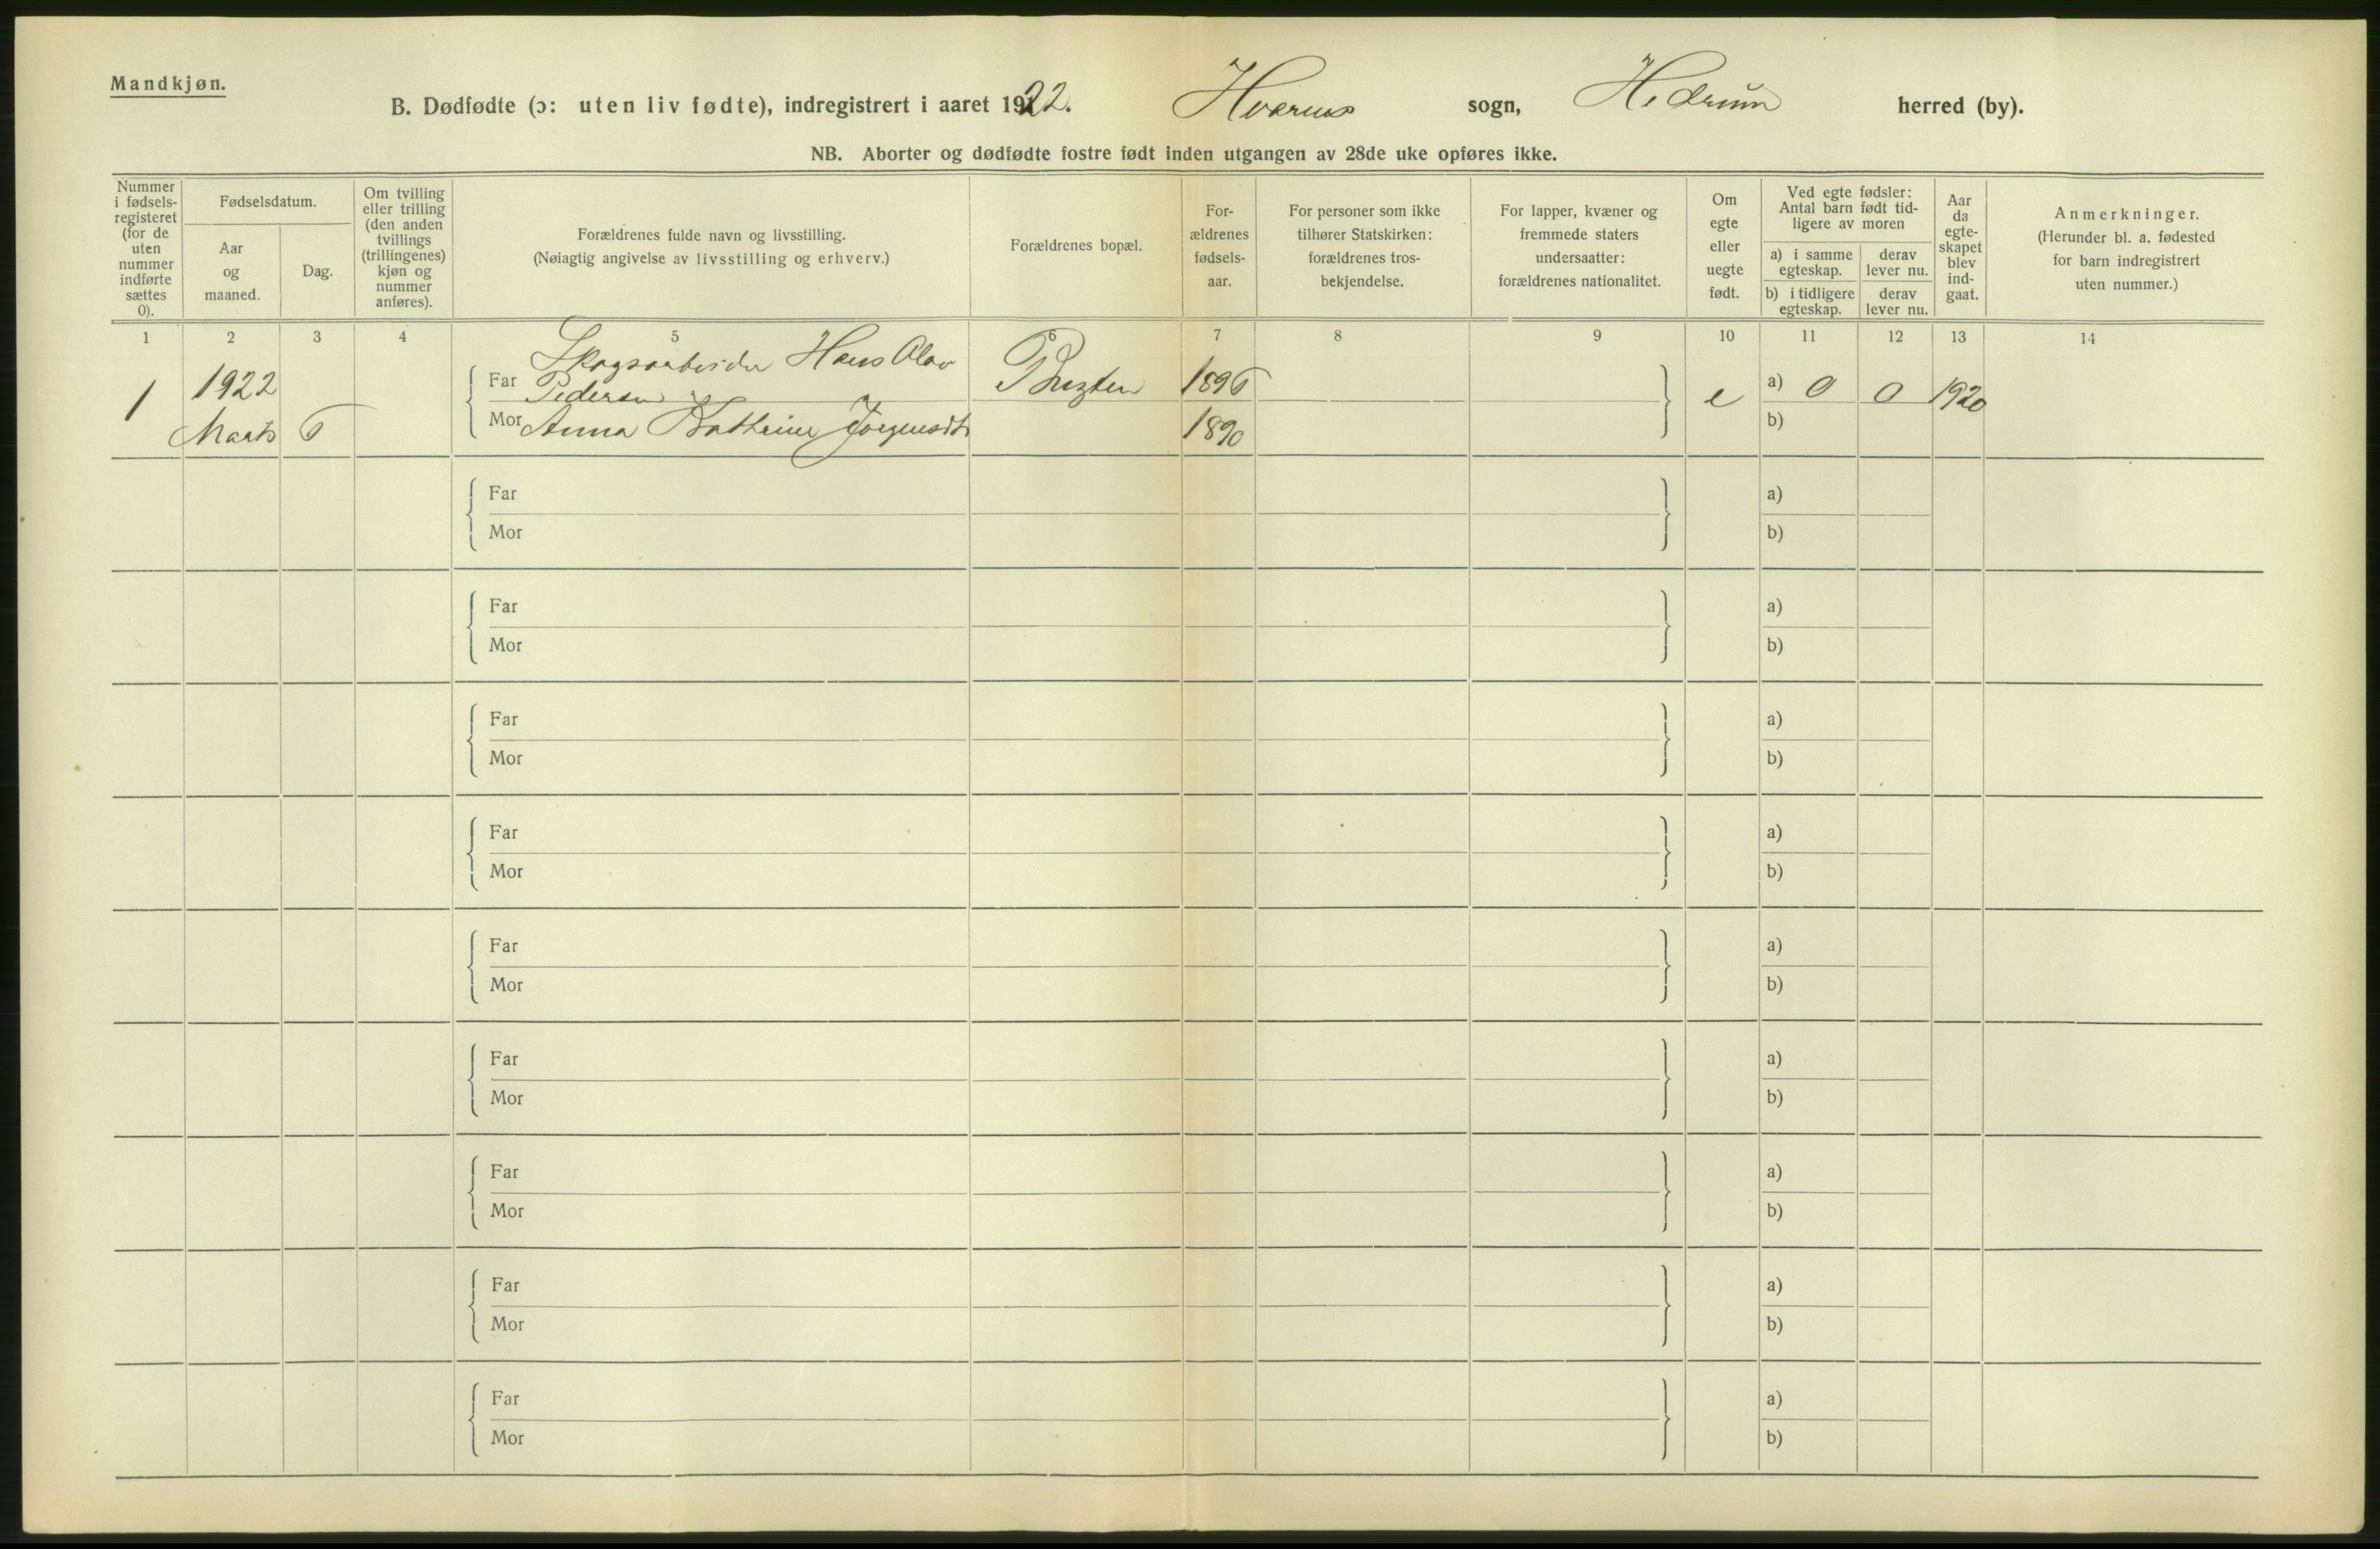 Mandkjøn.
B. Dødfødte (ɔ: uten liv fødte), indregistrert i aaret 1922. Hvarnes sogn, Hedrum herred (by).
NB. Aborter og dødfødte fostre født inden utgangen av 28de uke opføres ikke.
Nummer i fødsels-registeret (for de uten nummer indførte sættes 0).
Fødselsdatum.
Aar og maaned.
Dag.
Om tvilling eller trilling (den anden tvillings (trillingenes) kjøn og nummer anføres).
Forældrenes fulde navn og livsstilling.
(Nøiagtig angivelse av livsstilling og erhverv.)
Forældrenes bopæl.
For-ældrenes fødsels-aar.
For personer som ikke tilhører Statskirken: forældrenes tros-bekjendelse.
For lapper, kvæner og fremmede staters undersaatter: forældrenes nationalitet.
Om egte eller uegte født.
Ved egte fødsler: Antal barn født tid-ligere av moren
a) i samme egteskap.
derav lever nu.
b) i tidligere egteskap.
derav lever nu.
Aar da egte-skapet blev ind-gaat.
Anmerkninger.
(Herunder bl. a. fødested for barn indregistrert uten nummer.)
1 2 3 4 5 6 7 8 9 10 11 12 13 14
Skogsarbeider Hans Olav
1 1922 Far Pedersen 1896 e a) 0 0 1920
Marts 6 Mor Anna Kathrine Jørgensdtr 1890 b)
Far a)
Mor b)
Far a)
Mor b)
Far a)
Mor b)
Far a)
Mor b)
Far a)
Mor b)
Far a)
Mor b)
Far a)
Mor b)
Far a)
Mor b)
Far a)
Mor b)